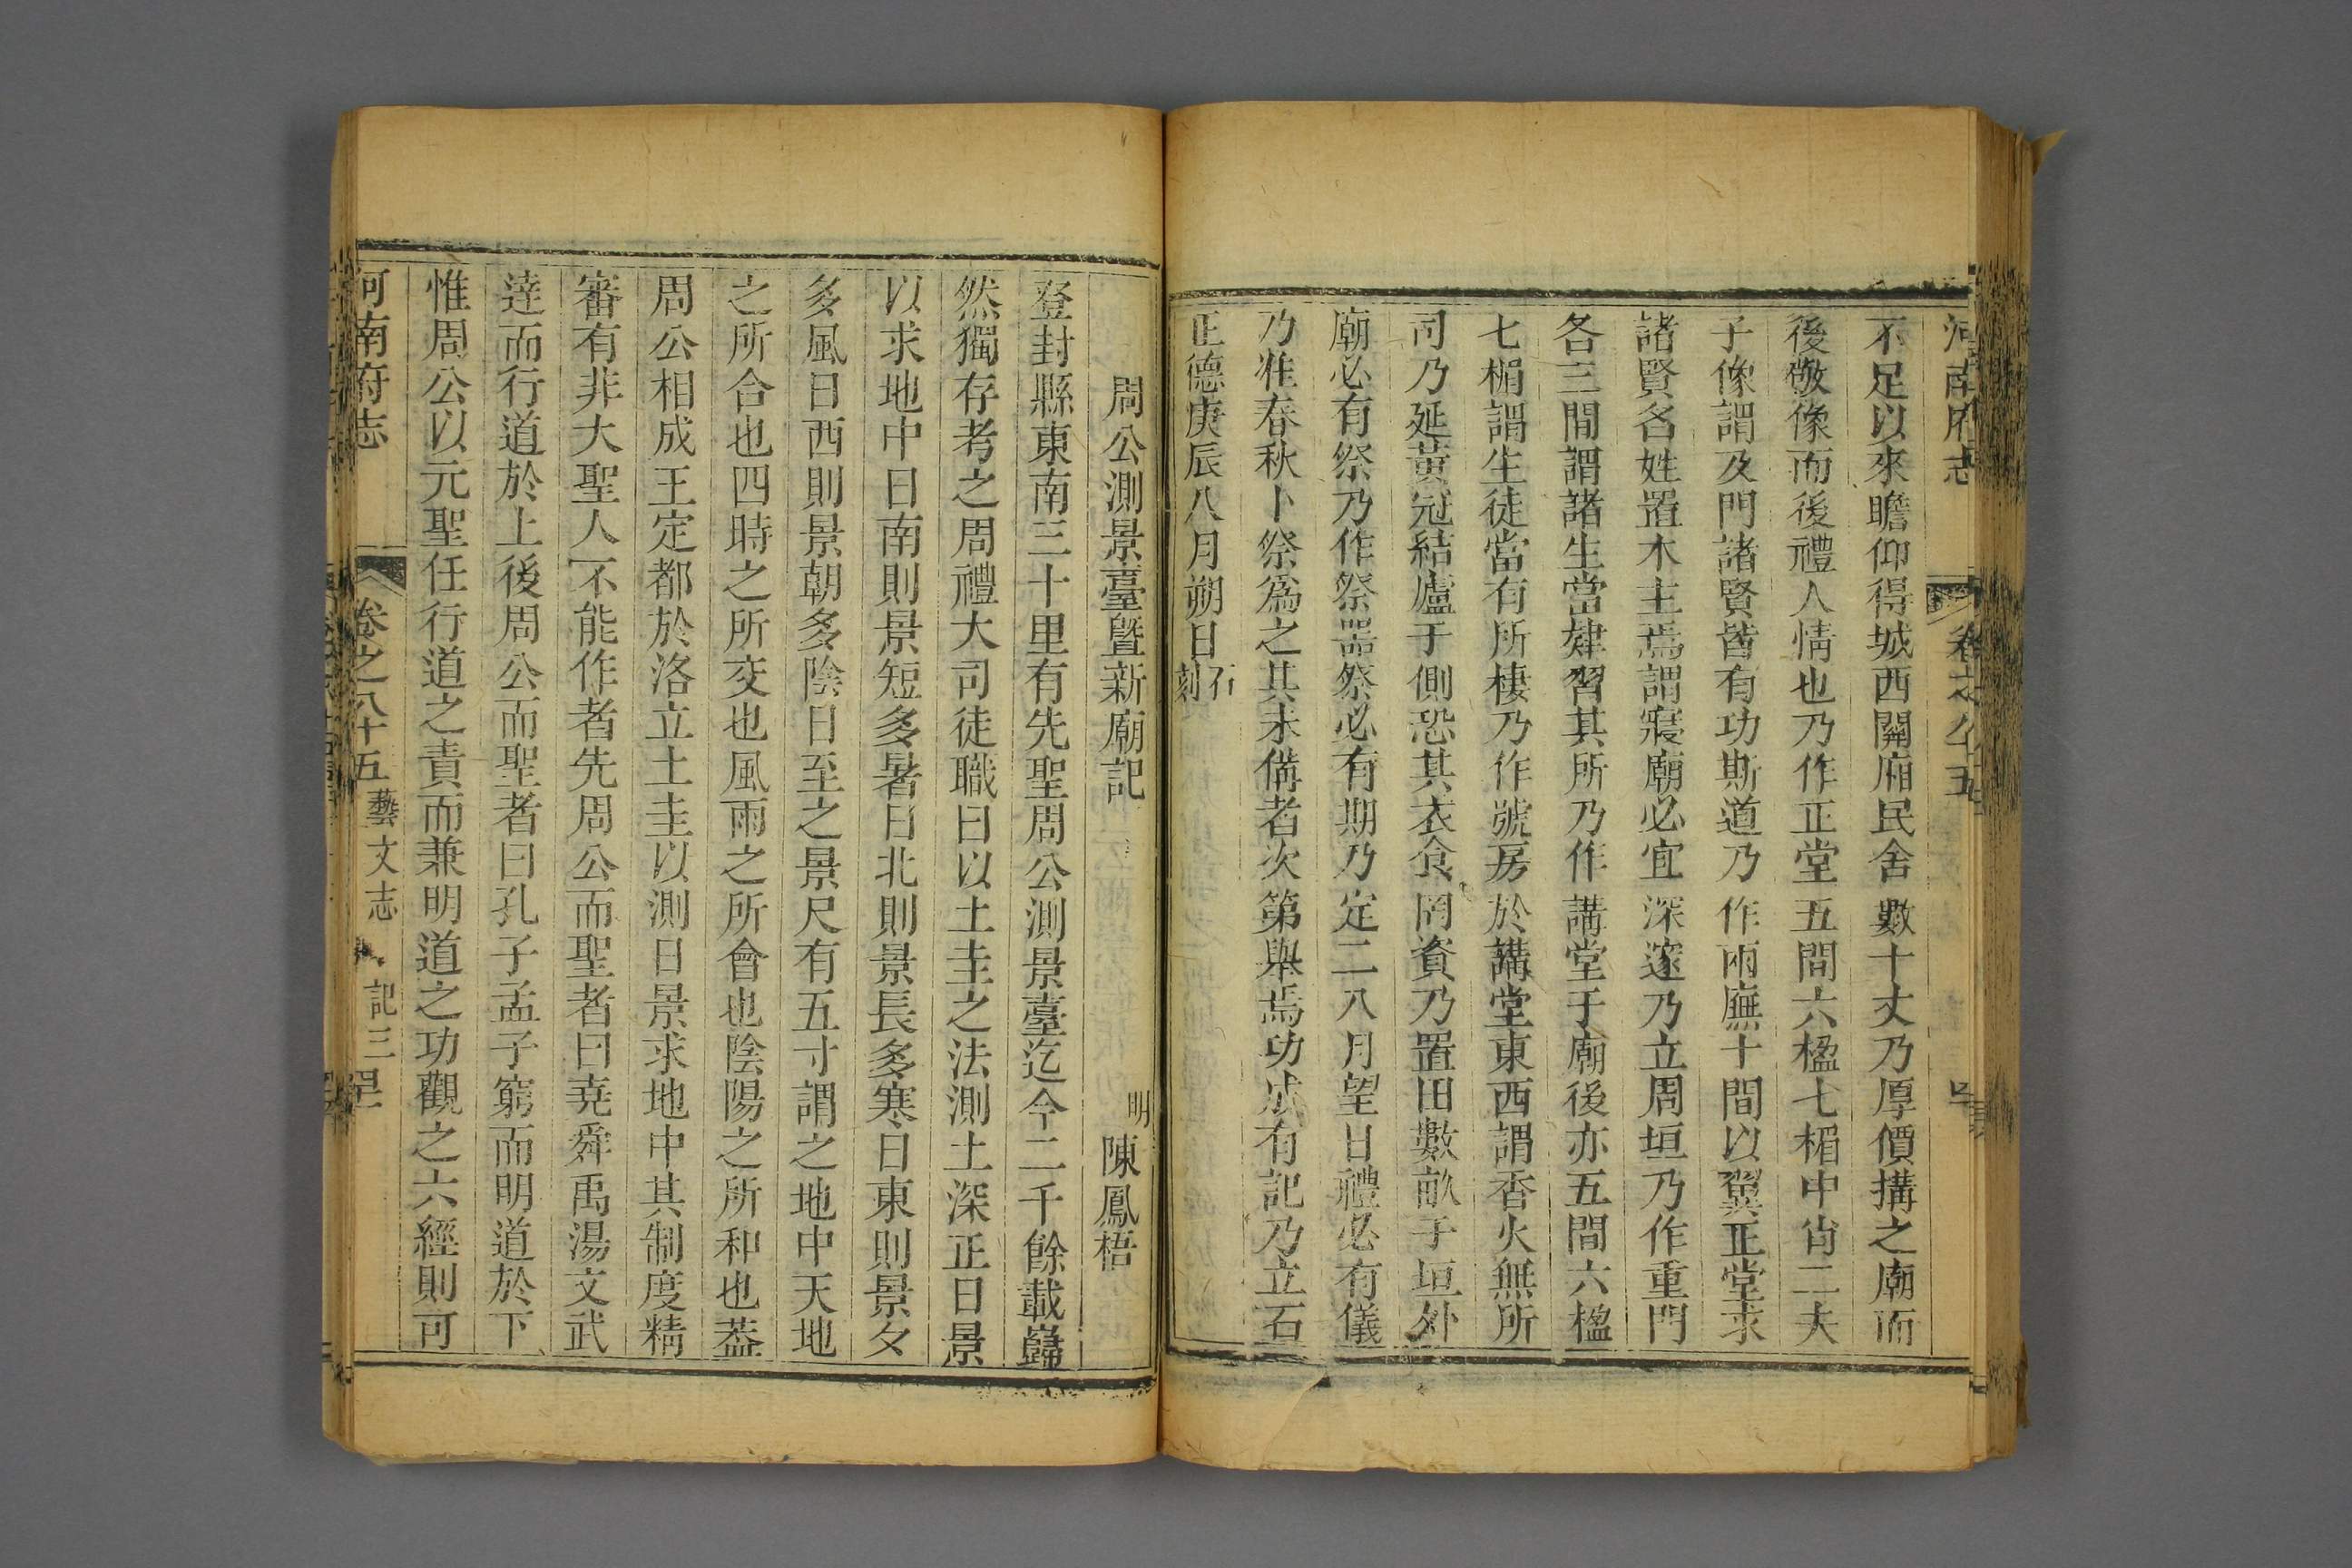 河南府志 卷之八十五
不足以來瞻仰得城西關廂民舍數十丈乃厚價搆之廟而
後敬像而後禮人情也乃作正堂五間六楹七楣中肖二夫
子像謂及門諸賢皆有功斯道乃作兩廡十間以翼正堂求
諸賢名姓置木主焉謂寢廟必宜深邃乃立周垣乃作重門
各三間謂諸生當肄習其所乃作講堂于廟後亦五間六楹
七楣謂生徒當有所棲乃作號房於講堂東西謂香火無所
司乃延黃冠結廬于側恐其衣食罔資乃置田數畝于垣外
廟必有祭乃作祭器祭必有期乃定二八月望日禮必有儀
乃准春秋卜祭爲之其未備者次第舉焉功成有記乃立石
正德庚辰八月朔日石刻
周公測景臺曁新廟記 明陳鳳梧
登封縣東南三十里有先聖周公測景臺迄今二千餘載巋
然獨存考之周禮大司徒職曰以土圭之法測土深正日景
以求地中日南則景短多暑日北則景長多寒日東則景夕
多風日西則景朝多陰日至之景尺有五寸謂之地中天地
之所合也四時之所交也風雨之所會也陰陽之所和也葢
周公相成王定都於洛立土圭以測日景求地中其制度精
審有非大聖人不能作者先周公而聖者曰堯舜禹湯文武
逹而行道於上後周公而聖者曰孔子孟子窮而明道於下
惟周公以元聖任行道之責而兼明道之功觀之六經則可
河南府志 卷之八十五 藝文志 記三